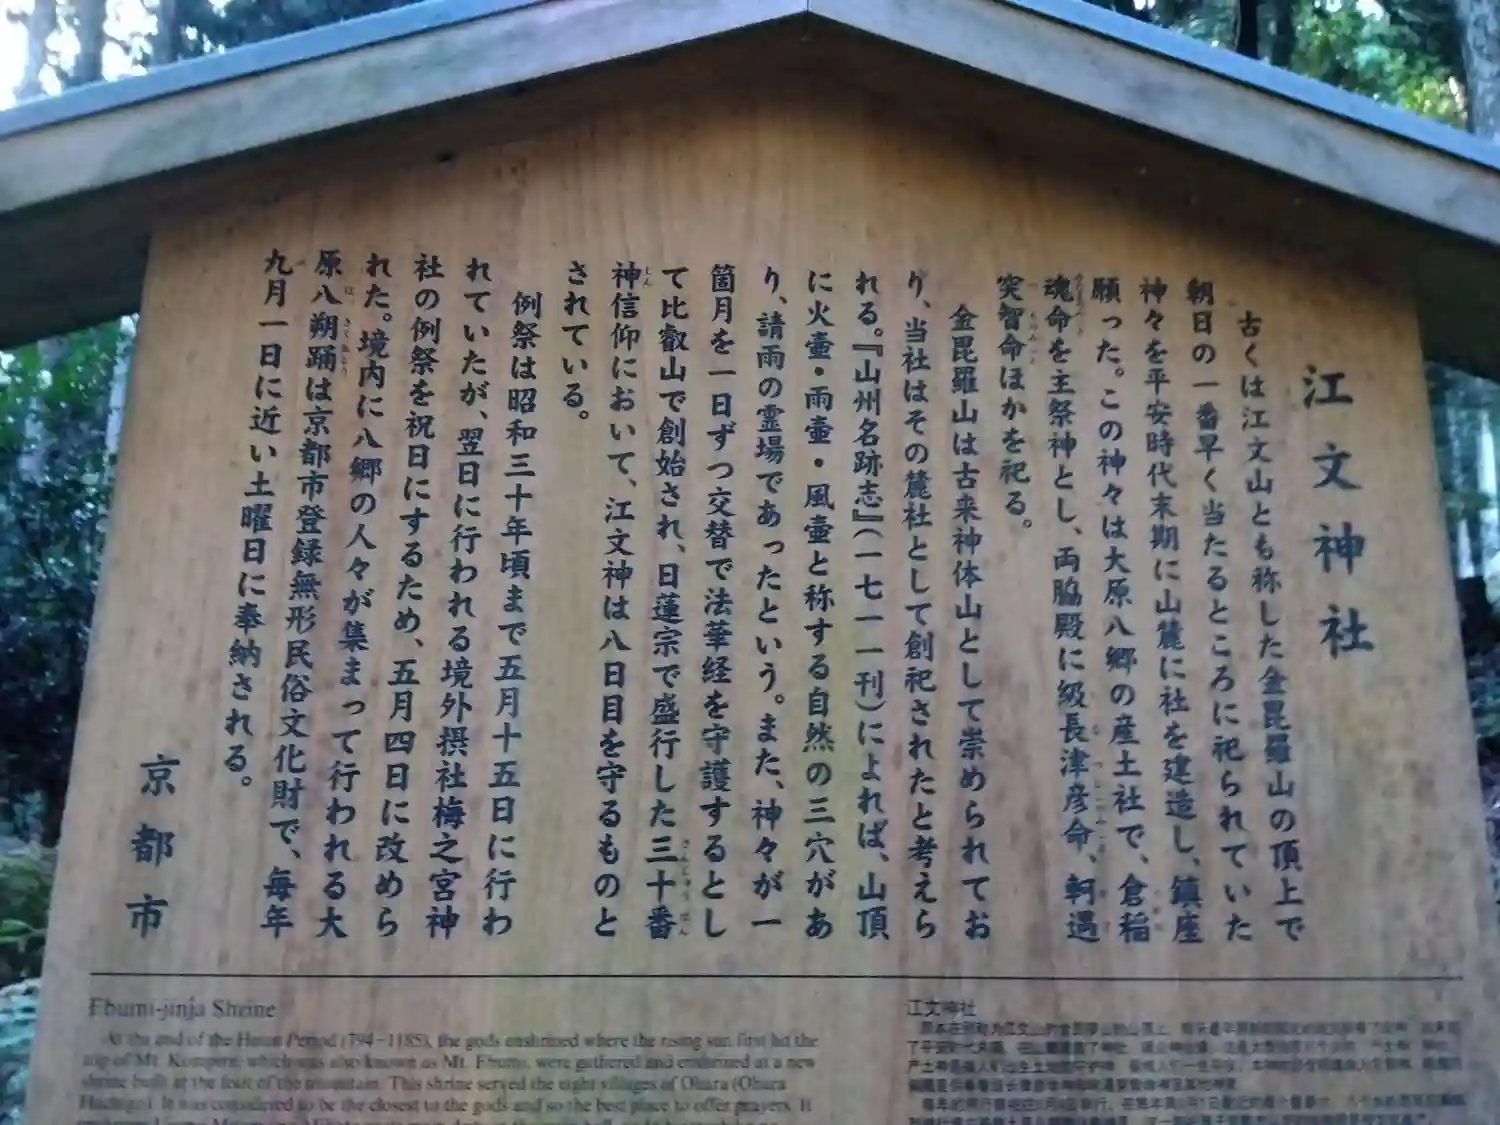 江文神社
古くは江文山とも称した金毘羅山の頂上で
朝日の一番早く当たるところに祀られていた
神々を平安時代末期に山麓に社を建造し、鎮座
願った。この神々は大原八郷の産土社で、倉稲
魂命を主祭神とし、両脇殿に級長津彦命、軻遇
突智命ほかを祀る。
金毘羅山は古来神体山として崇められてお
り、当社はその麓社として創祀されたと考えら
れる。『山州名跡志』(一七一一刊)によれば、山頂
に火壷・雨壷・風壷と称する自然の三穴があ
り、請雨の霊場であったという。また、神々が一
箇月を一日ずつ交替で法華経を守護するとし
て比叡山で創始され、日蓮宗で盛行した三十番
神信仰において、江文神は八日目を守るものと
されている。
例祭は昭和三十年頃まで五月十五日に行わ
れていたが、翌日に行われる境外摂社梅之宮神
社の例祭を祝日にするため、五月四日に改めら
れた。境内に八郷の人々が集まって行われる大
原八朔踊は京都市登録無形民俗文化財で、毎年
九月一日に近い土曜日に奉納される。
京都市
Ebumi-jinja Shrine
At the end of the Heian Period (794–1185), the gods enshrined where the rising sun first hit the
top of Mt. Kompira, which was also known as Mt. Ebumi, were gathered and enshrined at a new
shrine built at the foot of the mountain. This shrine served the eight villages of Ohara (Ohara
Hachigo). It was considered to be the closest to the gods and so the best place to offer prayers. It
江文神社